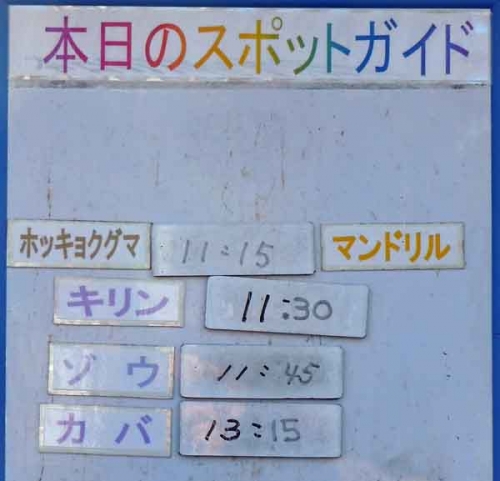 本日のスポットガイド
ホッキョクグマ 11:15 マンドリル
キリン 11:30
ゾウ 11:45
カバ 13:15